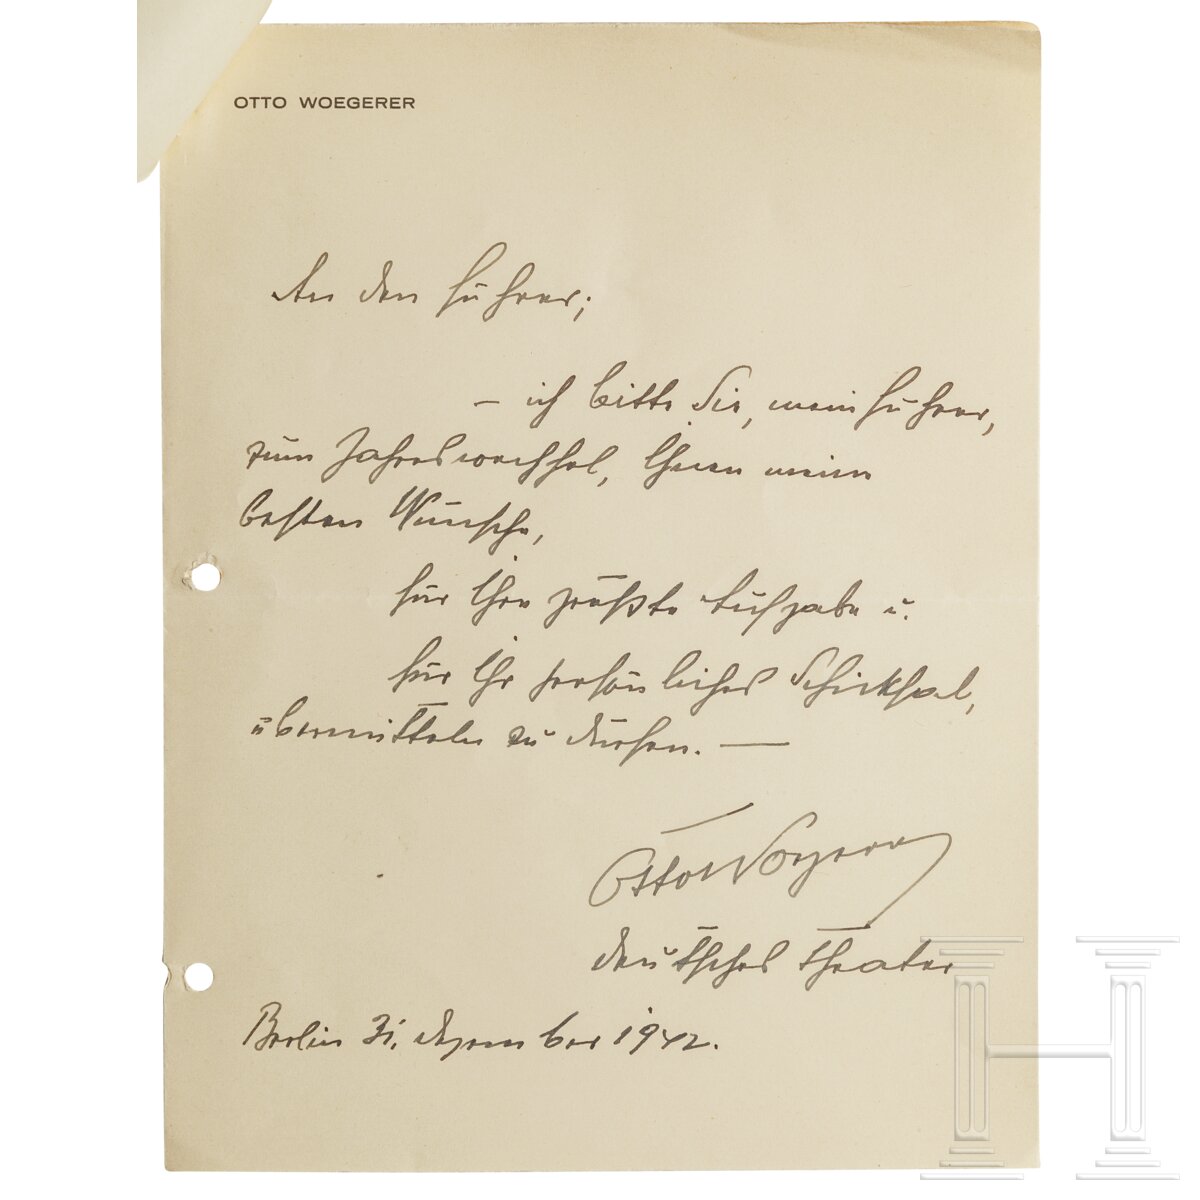 OTTO WOEGERER
An den Führer;
– ich bitte Sie, mein Führer,
zum Jahreswechsel, Ihnen meine
besten Wünsche,
für Ihre größte Aufgabe u.
für Ihr persönliches Schicksal,
übermitteln zu dürfen. —
Otto Woegerer
Deutsches Theater
Berlin 31. Dezember 1942.